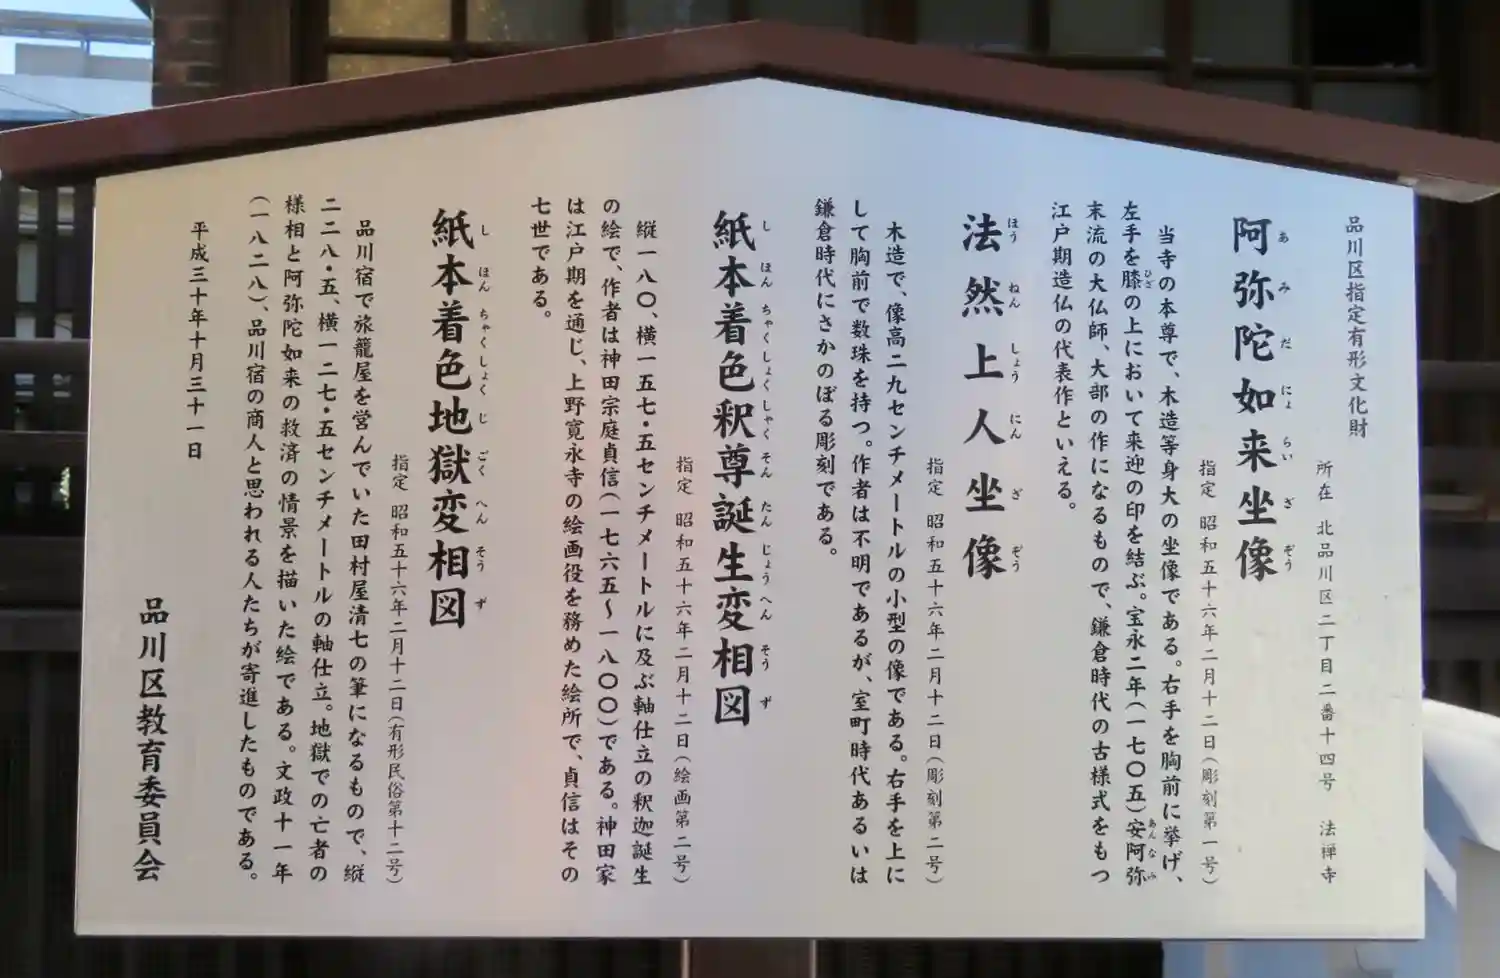 品川区指定有形文化財
所在 北品川区二丁目二番十四号 法禅寺
阿弥陀如来坐像
あみだにょらいざぞう
指定 昭和五十六年二月十二日(彫刻第一号)
当寺の本尊で、木造等身大の坐像である。右手を胸前に挙げ、
左手を膝の上において来迎の印を結ぶ。宝永二年(一七〇五)安阿弥
ひざ
あんなみ
末流の大仏師、大部の作になるもので、鎌倉時代の古様式をもつ
江戸期造仏の代表作といえる。
法然上人坐像
ほうねんしょうにんざぞう
指定 昭和五十六年二月十二日(彫刻第二号)
木造で、像高二九センチメートルの小型の像である。右手を上に
して胸前で数珠を持つ。作者は不明であるが、室町時代あるいは
鎌倉時代にさかのぼる彫刻である。
紙本着色釈尊誕生変相図
しほんちゃくしょくしゃくそんたんじょうへんそうず
指定 昭和五十六年二月十二日(絵画第二号)
縦一八〇、横一五七・五センチメートルに及ぶ軸仕立の釈迦誕生
の絵で、作者は神田宗庭貞信(一七六五〜一八〇〇)である。神田家
は江戸期を通じ、上野寛永寺の絵画役を務めた絵所で、貞信はその
七世である。
紙本着色地獄変相図
しほんちゃくしょくじごくへんそうず
指定 昭和五十六年二月十二日(有形民俗第十二号)
品川宿で旅籠屋を営んでいた田村屋清七の筆になるもので、縦
二二八・五、横一二七・五センチメートルの軸仕立。地獄での亡者の
様相と阿弥陀如来の救済の情景を描いた絵である。文政十一年
(一八二八)、品川宿の商人と思われる人たちが寄進したものである。
平成三十年十月三十一日
品川区教育委員会